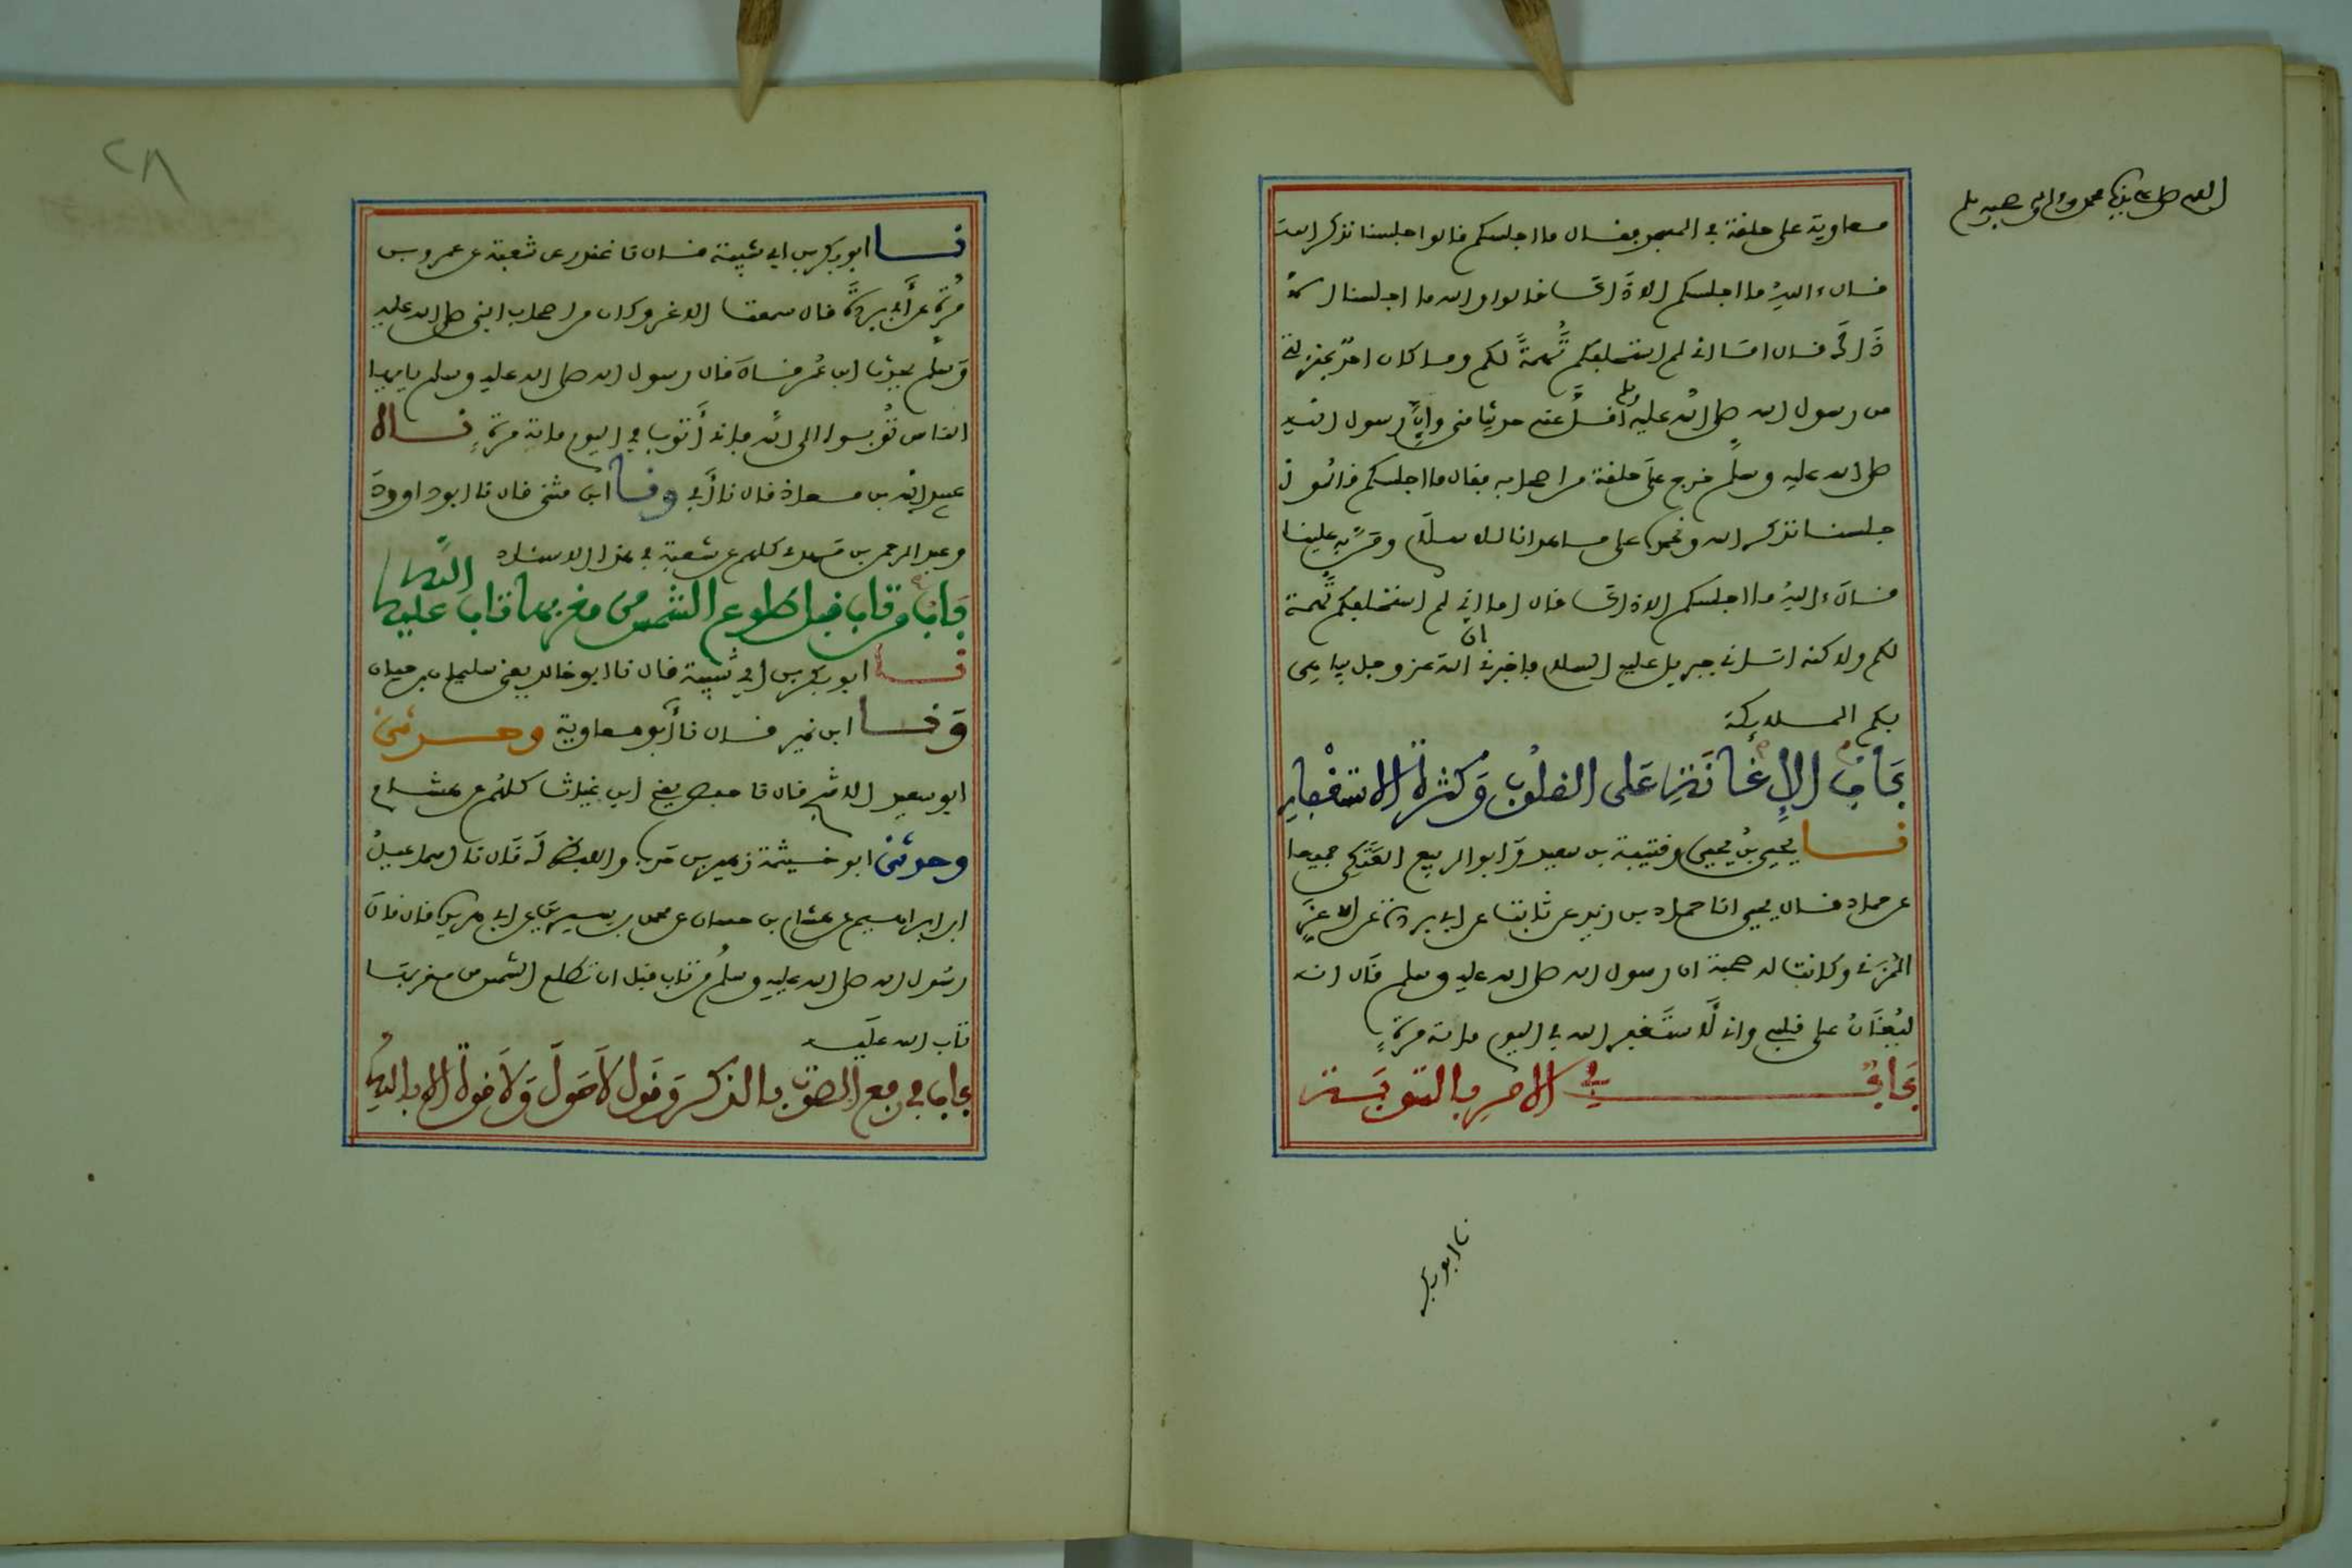 معاوية على حلقة في المسجد فقال ما اجلسكم قالوا جلسنا نذكر الله
قال ءالله ما اجلسكم الا ذاك قالوا والله ما اجلسنا الا
ذاك قال اما اني لم استحلفكم تهمة لكم وما كان احد بمنزلتي
من رسول الله صلى الله عليه وسلم اقل عنه حديثا مني وان رسول الله
صلى الله عليه وسلم خرج على حلقة من اصحابه فقال ما اجلسكم قالوا
جلسنا نذكر الله ونحمده على ما هدانا للاسلام ومن به علينا
قال ءالله ما اجلسكم الا ذاك قال اما اني لم استحلفكم تهمة
لكم ولاكنه اتاني جبريل عليه السلام فاخبرني ان الله عز وجل يباهي
بكم الملايكة
باب الإغانة على القلوب وكثرة الاستغفار
نا يحيى بن يحيى وقتيبة بن سعيد وابو الربيع العتكي جميعا
عن حماد قال يحيى انا حماد بن زيد عن ثابت عن ابي بردة عن الاغر
المزني وكانت له صحبة ان رسول الله صلى الله عليه وسلم قال انه
ليغان على قلبي واني لأستغفر الله في اليوم ماية مرة
باب في الامر بالتوبة
نا ابو بكر
٢٨
نا ابو بكر بن ابي شيبة قال نا غندر عن شعبة عن عمرو بن
مرة عن أبي بردة قال سمعت الاغر وكان من اصحاب النبي صلى الله عليه
وسلم يحدث ابن عمر قال قال رسول الله صلى الله عليه وسلم يا ايها
الناس توبوا الى الله فاني أتوب في اليوم ماية مرة نا
عبيد الله بن معاذ قال نا أبي ونا ابن مثنى قال نا ابو داوود
وعبد الرحمن بن مهدي كلهم عن شعبة في هذا الاسناد
باب من تاب قبل طلوع الشمس من مغربها تاب الله عليه
نا ابو بكر بن ابي شيبة قال نا ابو خالد يعني سليمان بن حيان
ونا ابن نمير قال نا أبو معاوية وحدثني
ابو سعيد الاشج قال نا حفص يعني ابن غياث كلهم عن هشام
وحدثني ابو خيثمة زهير بن حرب واللفظ له قال نا اسماعيل
ابن ابراهيم عن هشام بن حسان عن محمد بن سيرين عن ابي هريرة قال قال
رسول الله صلى الله عليه وسلم من تاب قبل ان تطلع الشمس من مغربها
تاب الله عليه
باب في رفع الصوت بالذكر وقول لا حول ولا قوة الا بالله